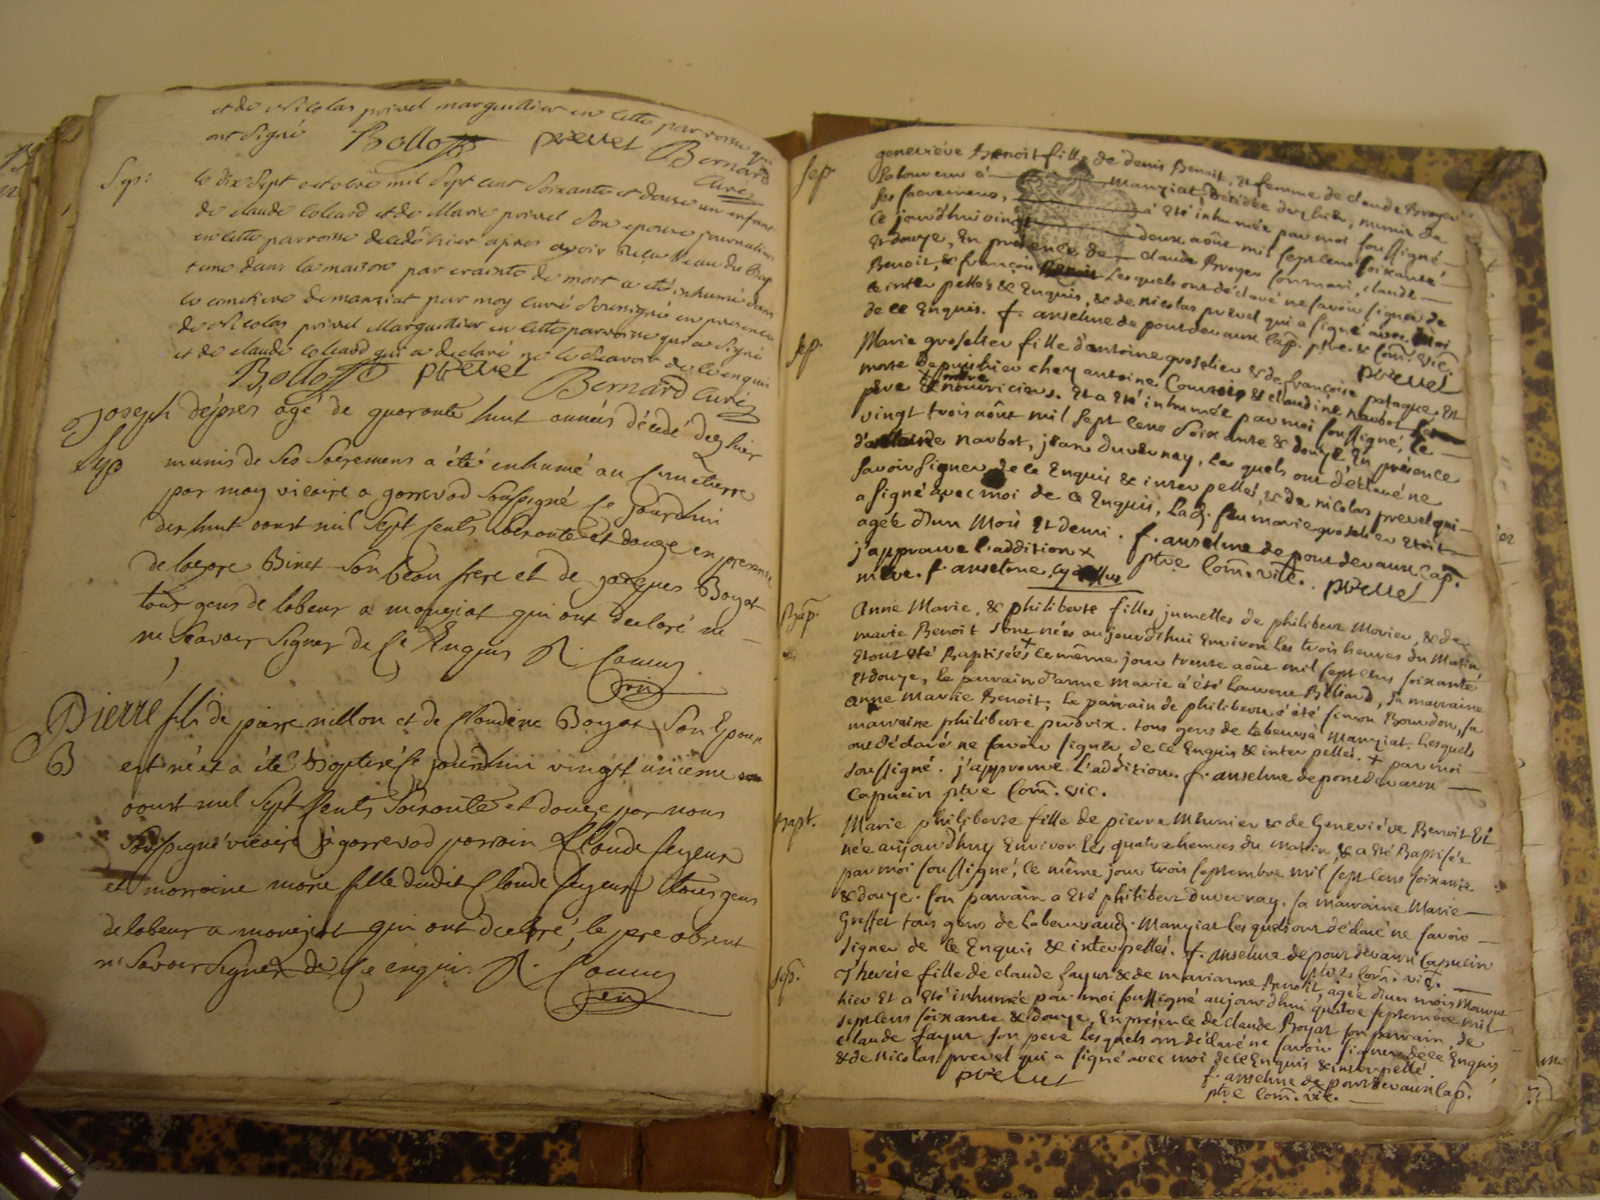 et de Nicolas privel marguillier en cette parroisse qui
ont signé Bollo prevet Bernard
Curé
Sep:
le dix sept octobre mil sept cent soixante et douze un enfant
de claude coleard et de Marie privel son epouse journaliers
en cette parroisse decédé hier apres avoir reçu l'eau du
dans la maison par crainte de mort a été inhumé dans
le cimetiere de manziat par moy curé soussigné en presence
de Nicolas privel Marguillier en cette parroisse qui a signé
et de claude coleard qui a declaré ne le sçavoir de ce enquis
Bollo prevet Bernard Curé
Joseph déprés agé de quarante huit années décédé dez hier
Sep
munis de ses sacremens a été enhumé au Cimetierre
par moy vicaire a gorrevod soussigné ce jourdhui
dix huit aoust mil sept cents soixante et douze en presence
de Binet son beau frere et de jacques Boyat
tous gens de labeur a manziat qui ont declaré ne
ne sçavoir signer de ce Enquis
Pierre fils de piere nillon et de Claudine Boyat son Epouse
B
est né et a été Baptisé ce jourdhui vingt unieme
aoust mil sept cents soixante et douze par nous
soussigné vicaire a gorrevod parrain Claude feyeux
et marraine marie fille dudit Claude feyeux tous gens
de labeur a manziat qui ont declaré, le pere absent
ne savoir signer de ce enquis
Sep.
geneviéve Benoit fille de denis Benoit, et femme de claude Broyer
Laboureur à Manziat décédée dez hier, munie de
ses sacremens, a été inhumée par moi soussigné
Ce jourdhui vingt deux août mil sept cens soixante
Et douze, En présence de claude Broyer son mari, claude
Benoit, & françois Lesquels ont déclaré ne savoir signer de
ce interpellés & Enquis, & de nicolas prevel qui a signé avec moi
de ce Enquis. f. anselme de pontdevaux Cap. ptre. & Com. vic.
prevet
Sep.
Marie groselier fille d'antoine groselier & de françoise patague. Est
morte depuis hier chez antoine Courtois & claudine naubot
père & nourriciers. Et a été inhumée par moi soussigné, le
vingt trois août mil sept cens soixante & douze En présence
naubot, jean duvernay, les quels ont déclaré ne
savoir signer de ce Enquis & interpellés & de nicolas prevel qui
a signé avec moi de ce Enquis, Lad. feu marie groselier Etoit
agée d'un Mois Et demi. f. anselme de pontdevaux Cap.
j'approuve l'addition x ptre Com. vic. prevet
mère. f. anselme
Bap.
Anne Marie, & philiberte filles jumelles de philibert Morier, & de
marie Benoit sont nées aujourd'hui Environ les trois heures du Matin
Et ont été Baptisées + le même jour trente août mil sept cens soixante
Et douze, le parrain d'anne marie a été Laurent Billiard, sa marraine
anne marie Benoit. Le parrain de philiberte a été simon Bourdon, sa
marraine philiberte perdrix. tous gens de labeur à Manziat. Lesquels
ont déclaré ne savoir signer de ce Enquis & interpellés. + par moi
soussigné. j'approuve l'addition. f. anselme de pontdevaux
Capucin ptre Com. vic.
Bapt.
Marie philiberte fille de pierre Meunier & de Geneviéve Benoit Est
née aujourd'huy Environ les quatre heures du matin & a été Baptisée
par moi soussigné, le même jour trois septembre mil sept cens soixante
& douze. son parrain a été philibert duvernay. sa marraine Marie
Greffet tous gens de labeur aud. Manziat lesquels ont déclaré ne savoir
signer de ce Enquis & interpellés. f. anselme de pontdevaux Capucin
ptre Com. vic.
Sep.
Therése fille de claude fayeux & de marianne Benoit, agée d'un mois Mourut
hier Et a été inhumée par moi soussigné aujourd'hui quatre septembre mil
sept cens soixante & douze, En présence de claude Boyat son parrain, de
claude fayeux son pere lesquels ont déclaré ne savoir signer de ce Enquis
& de nicolas prevel qui a signé avec moi de ce Enquis & interpellé
prevet f. anselme de pontdevaux Cap.
ptre Com. vic.